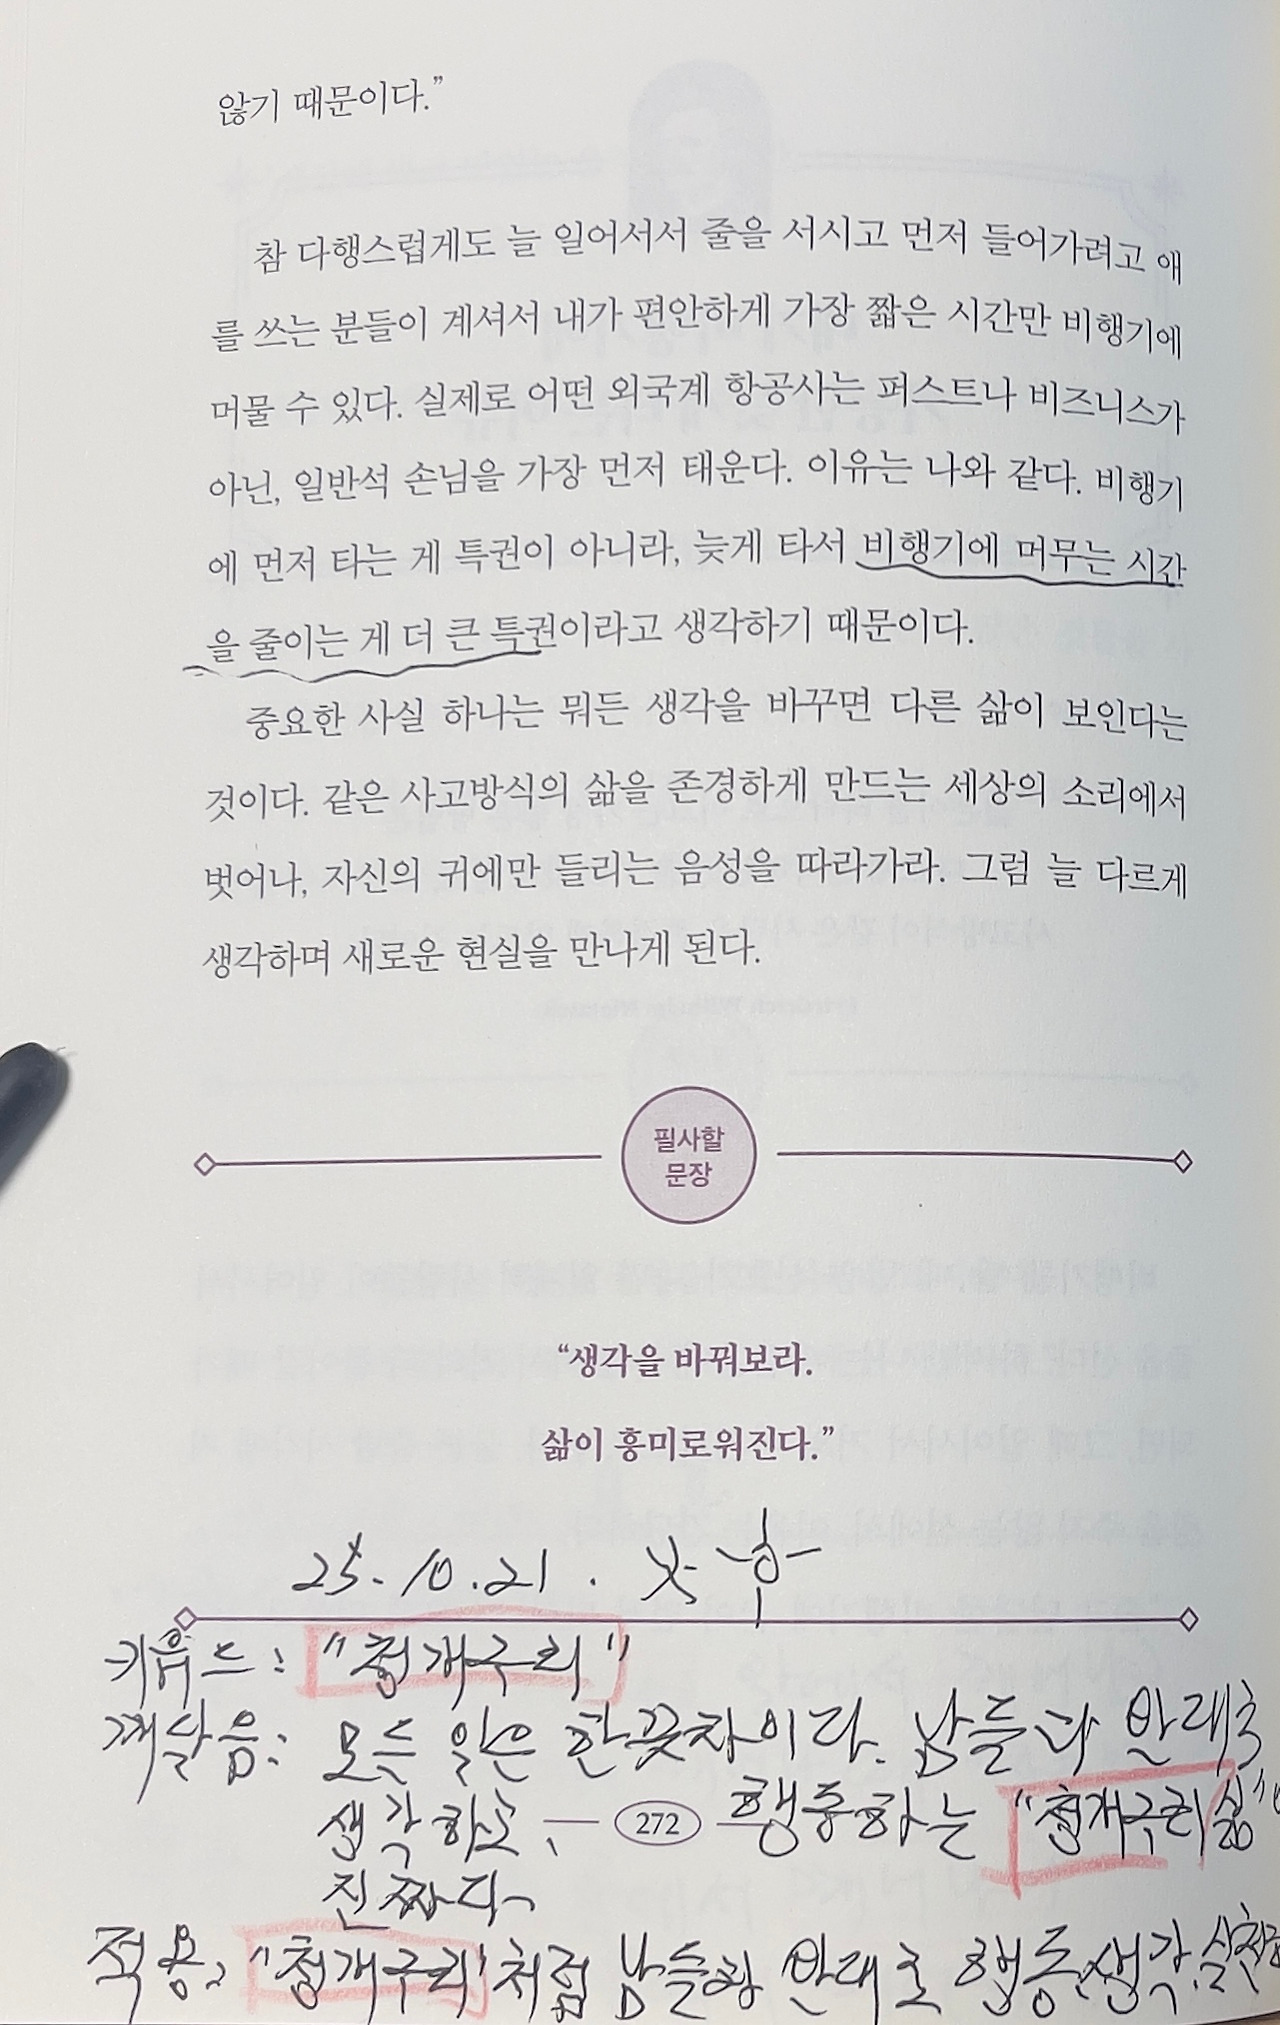 않기 때문이다.”
참 다행스럽게도 늘 일어서서 줄을 서시고 먼저 들어가려고 애
를 쓰는 분들이 계셔서 내가 편안하게 가장 짧은 시간만 비행기에
머물 수 있다. 실제로 어떤 외국계 항공사는 퍼스트나 비즈니스가
아닌, 일반석 손님을 가장 먼저 태운다. 이유는 나와 같다. 비행기
에 먼저 타는 게 특권이 아니라, 늦게 타서 비행기에 머무는 시간
을 줄이는 게 더 큰 특권이라고 생각하기 때문이다.
중요한 사실 하나는 뭐든 생각을 바꾸면 다른 삶이 보인다는
것이다. 같은 사고방식의 삶을 존경하게 만드는 세상의 소리에서
벗어나, 자신의 귀에만 들리는 음성을 따라가라. 그럼 늘 다르게
생각하며 새로운 현실을 만나게 된다.
필사할
문장
“생각을 바꿔보라.
삶이 흥미로워진다.”
25. 10. 21.
키워드: "청개구리"
깨달음: 모든 일은 한끗차이다. 남들과 반대로
생각하고, 행동하는 "청개구리 삶"
272
진짜다
적용: "청개구리"처럼 반대로 행동, 생각,